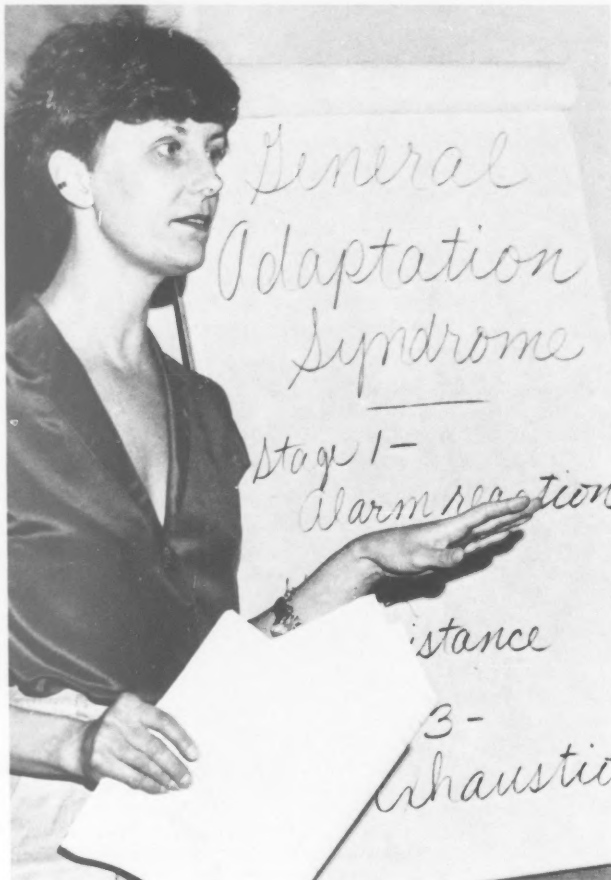 General
Adaptation
Syndrome
Stage 1-
Alarm reaction
istance
3-
Exhaustio